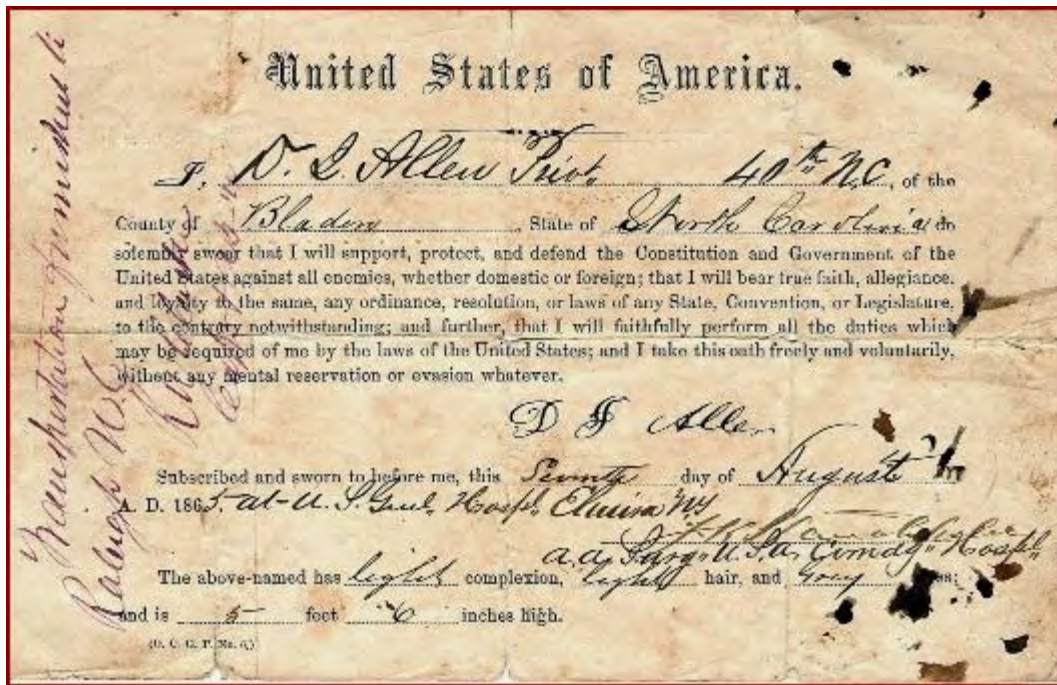 United States of America.
I, D. S. Allen Privt. 40th N.C., of the
County of Bladen, State of North Carolina do
solemnly swear that I will support, protect, and defend the Constitution and Government of the
United States against all enemies, whether domestic or foreign; that I will bear true faith, allegiance,
and loyalty to the same, any ordinance, resolution, or laws of any State, Convention, or Legislature,
to the contrary notwithstanding; and further, that I will faithfully perform all the duties which
may be required of me by the laws of the United States; and I take this oath freely and voluntarily,
without any mental reservation or evasion whatever.
Allen
Subscribed and sworn to before me, this day of August
A. D. 1865. at U. S. Genl. Hospl. Elmira NY
a. a. Surg. U.S.A. Comdg. Hospl.
The above-named has light complexion, light hair, and Grey eyes;
and is 5 feet 6 inches high.
Transportation furnished to
Raleigh N.C.